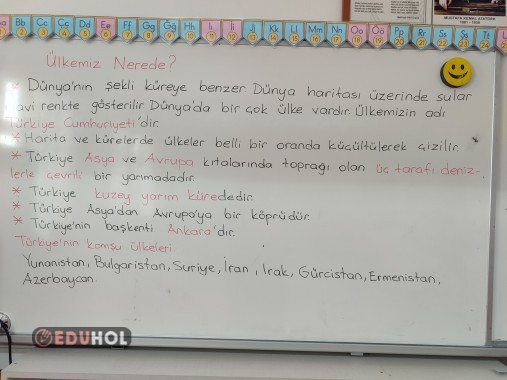 Bb Cc Çç Dd Ee Ff Gg Ğğ Hh Iı İi Jj Kk Ll Mm Nn Oo Öö Pp Rr Ss Şş Tt
MUSTAFA KEMAL ATATÜRK
Ülkemiz Nerede?
* Dünya'nın şekli küreye benzer. Dünya haritası üzerinde sular
mavi renkte gösterilir. Dünya'da bir çok ülke vardır. Ülkemizin adı
Türkiye Cumhuriyeti'dir.
* Harita ve kürelerde ülkeler belli bir oranda küçültülerek çizilir.
* Türkiye Asya ve Avrupa kıtalarında toprağı olan üç tarafı deniz-
lerle çevrili bir yarımadadır.
* Türkiye kuzey yarım kürededir.
* Türkiye Asya'dan Avrupa'ya bir köprüdür.
* Türkiye'nin başkenti Ankara'dır.
Türkiye'nin komşu ülkeleri
Yunanistan, Bulgaristan, Suriye, İran, Irak, Gürcistan, Ermenistan,
Azerbaycan.
EDUHOL